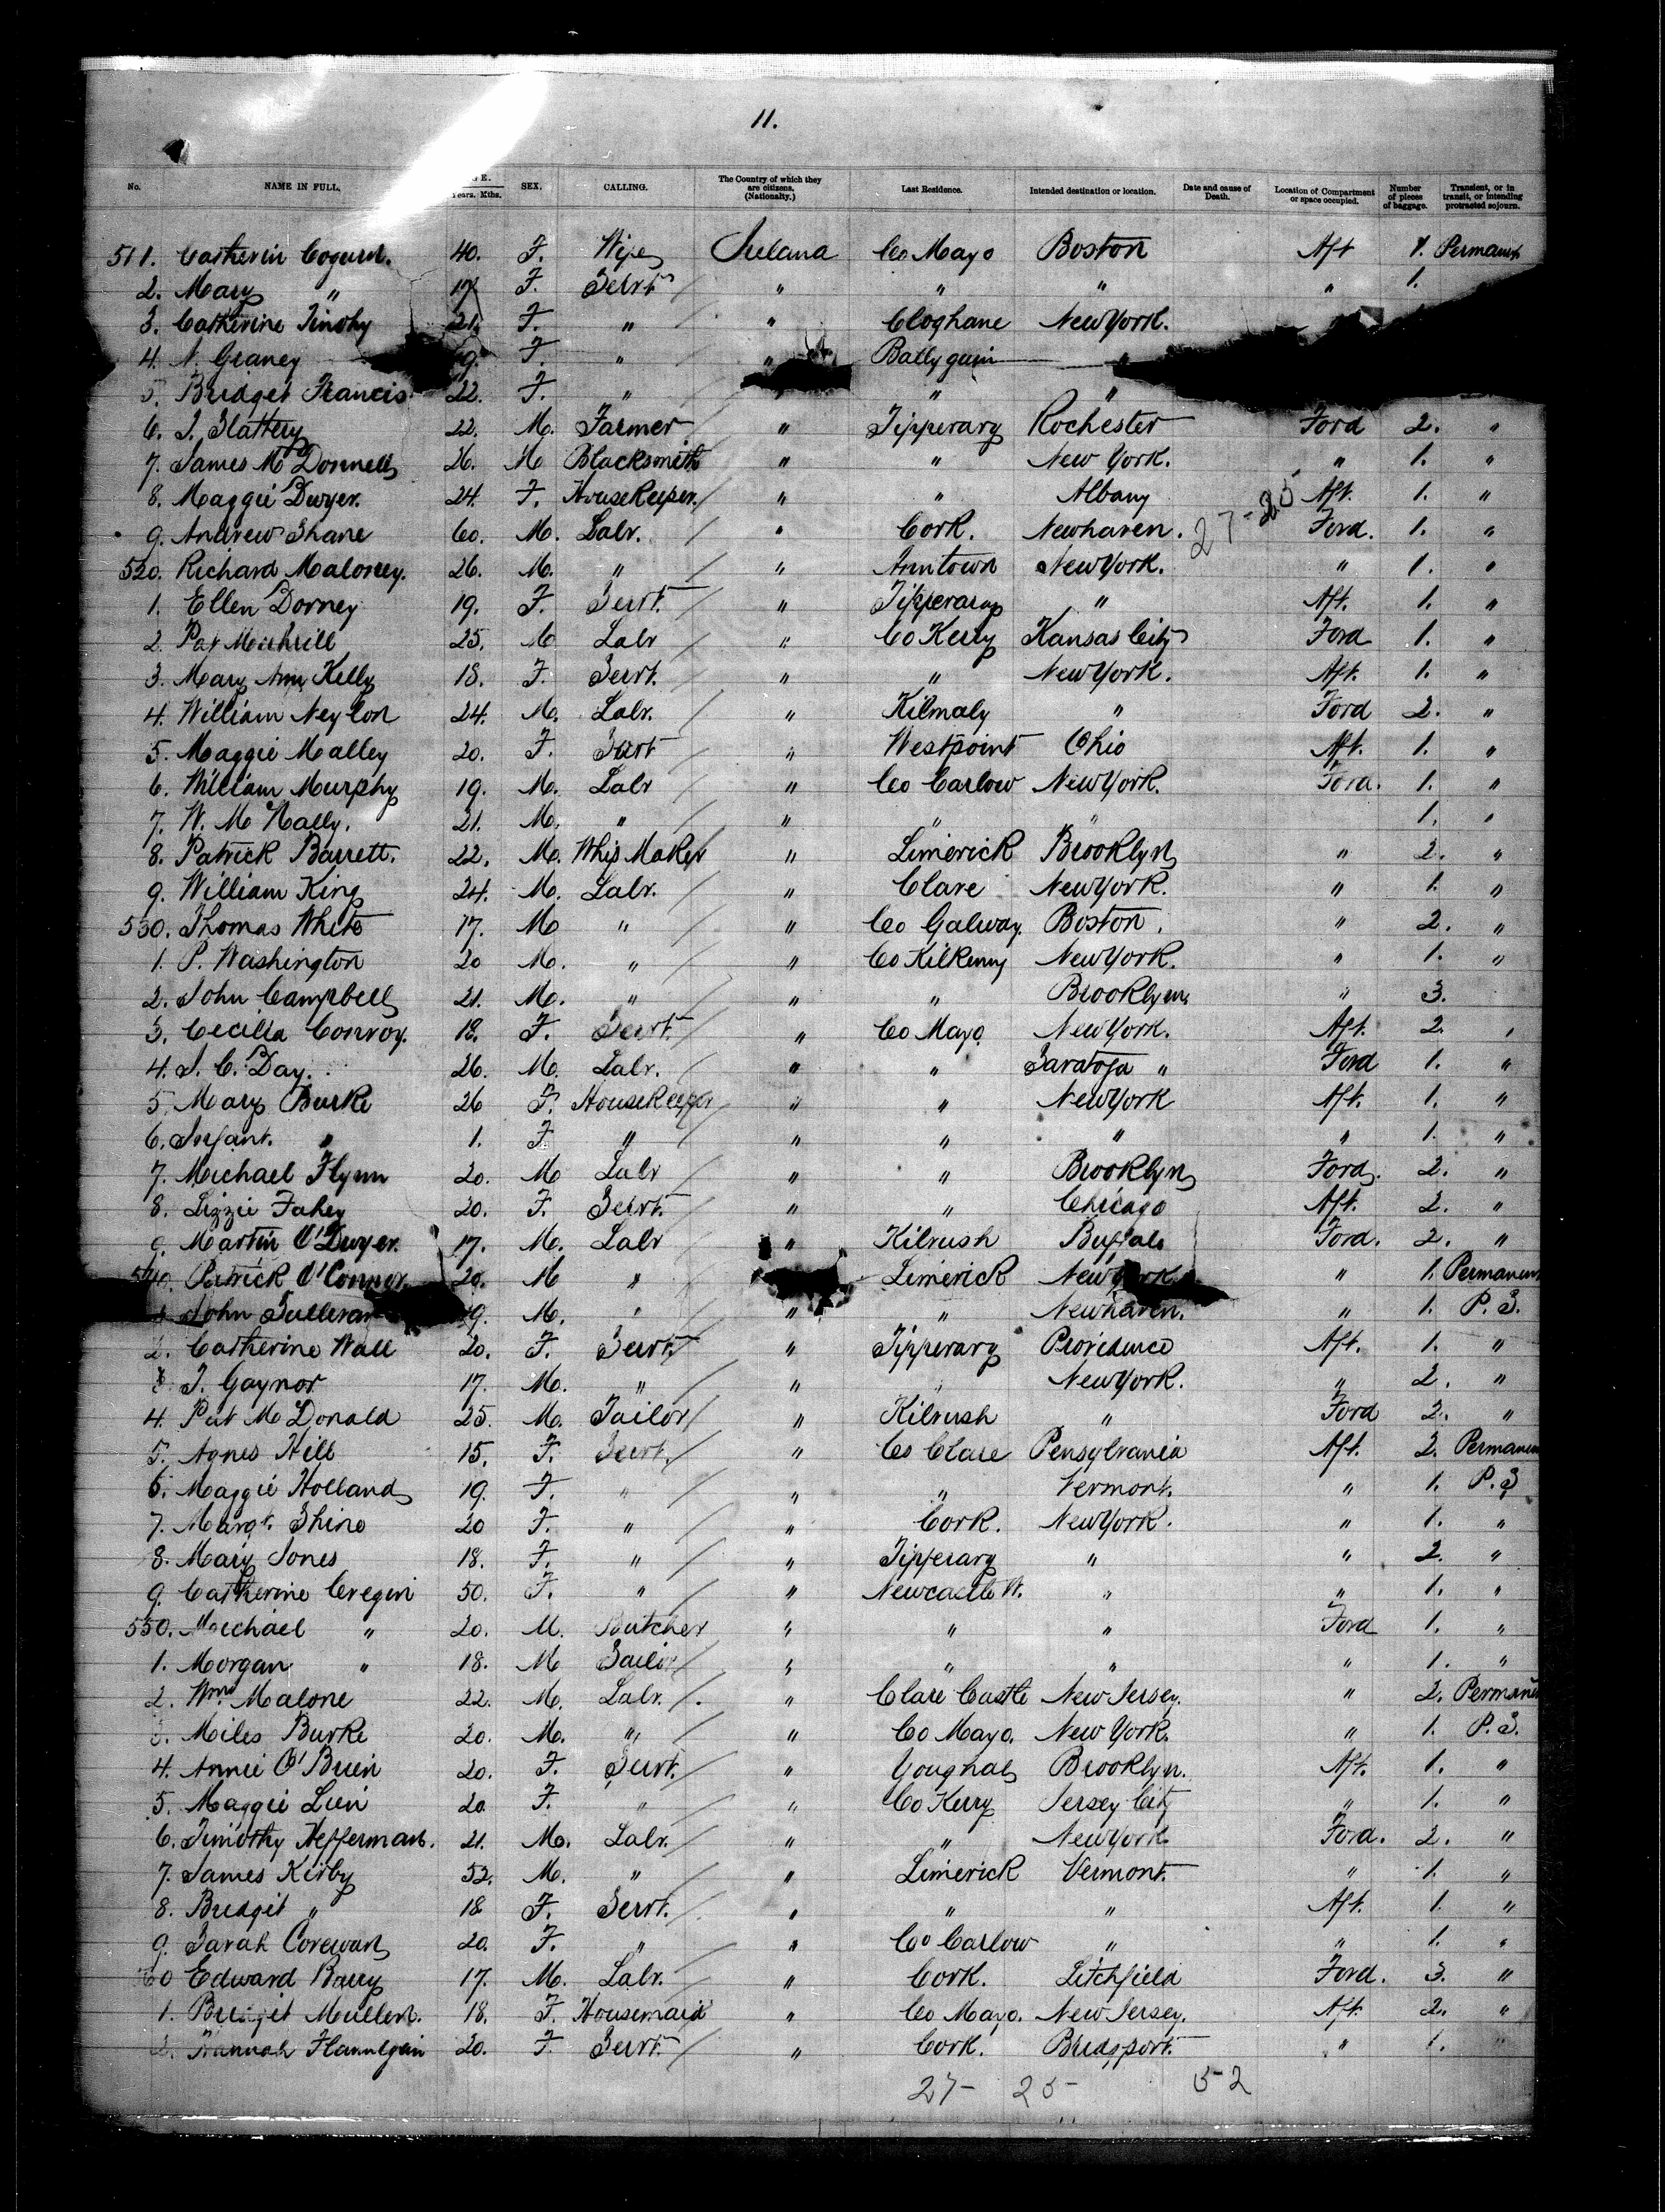 11.
No. NAME IN FULL. Years. Mths. SEX. CALLING. The Country of which they are citizens, (Nationality.) Last Residence. Intended destination or location. Date and cause of Death. Location of Compartment or space occupied. Number of pieces of baggage. Transient, or in transit, or intending protracted sojourn.
511. Catherin 40. F. Wife Ireland Co Mayo Boston Aft 1. Permanent
2. Mary " 17 F. Servt " " " " 1.
3. Catherine 21. F. " " Cloghane New York.
4. N. Graney 9. F. " " "
5. Bridget Francis 22. F. " " "
6. T. Slattery 22. M. Farmer " Tipperary Rochester Ford 2. "
7. James McDonnell 26. M Blacksmith " " New York. " 1. "
8. Maggie Dwyer. 24. F. HouseKeeper. " " Albany Aft. 1. "
9. Andrew Shane 60. M. Labr. " Cork. Newhaven. 27-25 Ford. 1. "
520. Richard Maloney. 26. M. " " New York. " 1. "
1. Ellen Dorney 19. F. Servt. " Tipperary " Aft. 1. "
2. Pat 25. M Labr " Co Kerry Kansas City Ford 1. "
3. Mary Ann Kelly 18. F. Servt. " " New York. Aft. 1. "
4. William Neylon 24. M. Labr. " Kilmaly " Ford 2. "
5. Maggie Malley 20. F. Servt " Westpoint Ohio Aft. 1. "
6. William Murphy 19. M. Labr " Co Carlow New York. Ford. 1. "
7. W. McNally. 21. M. " " " " 1. "
8. Patrick Barrett. 22. M. Whip Maker " Limerick Brooklyn " 2. "
9. William King 24. M. Labr. " Clare New York. " 1. "
530. Thomas White 17. M " " Co Galway. Boston. " 2. "
1. P. Washington 20 M. " " Co Kilkenny New York. " 1. "
2. John Campbell 21. M. " " " Brooklyn. " 3.
3. Cecilia Conroy. 18. F. Servt. " Co Mayo New York. Aft. 2. "
4. J. C. Day. 26. M. Labr. " " Saratoga " Ford 1. "
5. Mary Burke 26 F. HouseKeeper " " New York Aft. 1. "
6. Infant. " 1. F. " " " " " 1. "
7. Michael Flynn 20. M Labr " " Brooklyn Ford. 2. "
8. Lizzie Fahey 20. F. Servt. " " Chicago Aft. 2. "
9. Martin O'Dwyer. 17. M. Labr " Kilrush Buffalo Ford. 2. "
540. Patrick O'Connor. 20. M " Limerick New York " 1. Permanent
John Sullivan 19. M. " " " Newhaven. " 1. P.S.
2. Catherine Wall 20. F. Servt. " Tipperary Providence Aft. 1. "
3 T. Gaynor 17. M. " " " New York. " 2. "
4. Pat McDonald 25. M. Tailor " Kilrush " Ford 2. "
5. Agnes Hill 15. F. Servt. " Co Clare Pensylvania Aft. 2. Permanent
6. Maggie Holland 19. F. " " " Vermont. " 1. P.S
7. Margt. Shine 20 F. " " Cork. New York. " 1. "
8. Mary Jones 18. F. " " Tipperary " " 2. "
9. Catherine Cregin 50. F. " " Newcastle W. " " 1. "
550. Michael " 20. M. Butcher " " " Ford 1. "
1. Morgan " 18. M " " " " 1. "
2. Wm. Malone 22. M. Labr. " Clare Castle New Jersey. " 2. Permanent
3. Miles Burke 20. M. " " Co Mayo. New York. " 1. P.S.
4. Annie O'Brien 20. F. Servt. " Youghal Brooklyn. Aft. 1. "
5. Maggie 20 F. " " Co Kerry Jersey City " 1. "
6. Timothy Hefferman. 21. M. Labr. " " New York. Ford. 2. "
7. James Kirby 52. M. " " Limerick Vermont. " 1. "
8. Bridgit " 18 F. Servt. " " " Aft. 1. "
9. Sarah 20. F. " " Co Carlow " " 1. "
560 Edward Barry 17. M. Labr. " Cork. Litchfield Ford. 3. "
1. Bridgit Mullen. 18. F. Housemaid " Co Mayo. New Jersey. Aft. 2. "
2. Hannah 20. F. Servt. " Cork. " 1. "
27- 25- 52